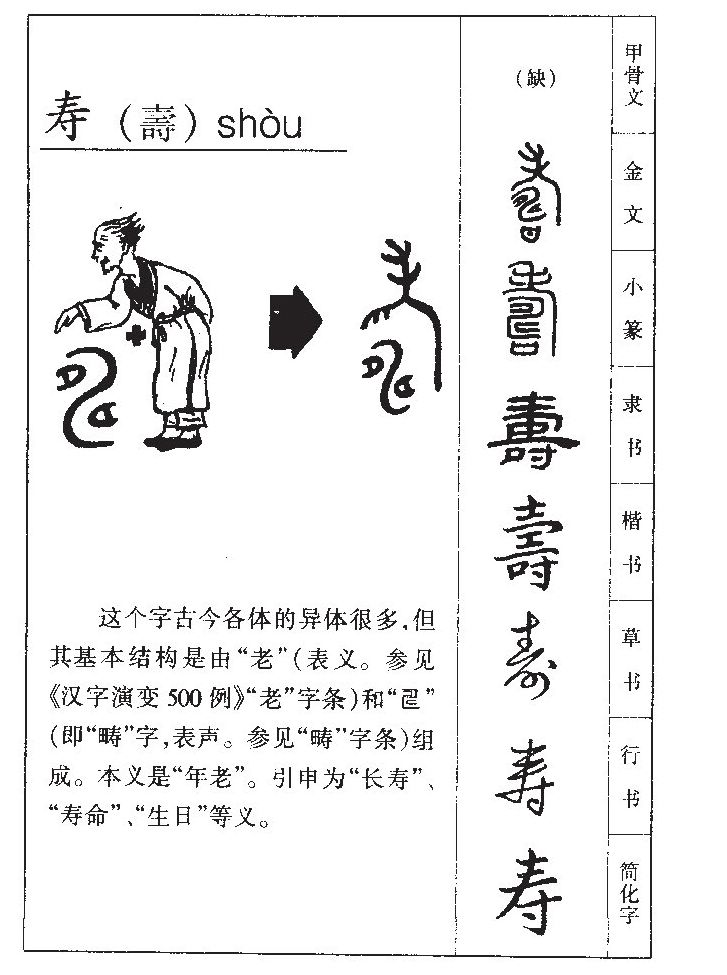 寿（壽）shòu
这个字古今各体的异体很多，但
其基本结构是由“老”（表义。参见
《汉字演变500例》“老”字条）和“𠃬”
（即“畴”字，表声。参见“畴”字条）组
成。本义是“年老”。引申为“长寿”、
“寿命”、“生日”等义。
（缺）
甲骨文
壽
金文
壽
小篆
壽
隶书
壽
楷书
寿
草书
寿
行书
寿
简化字